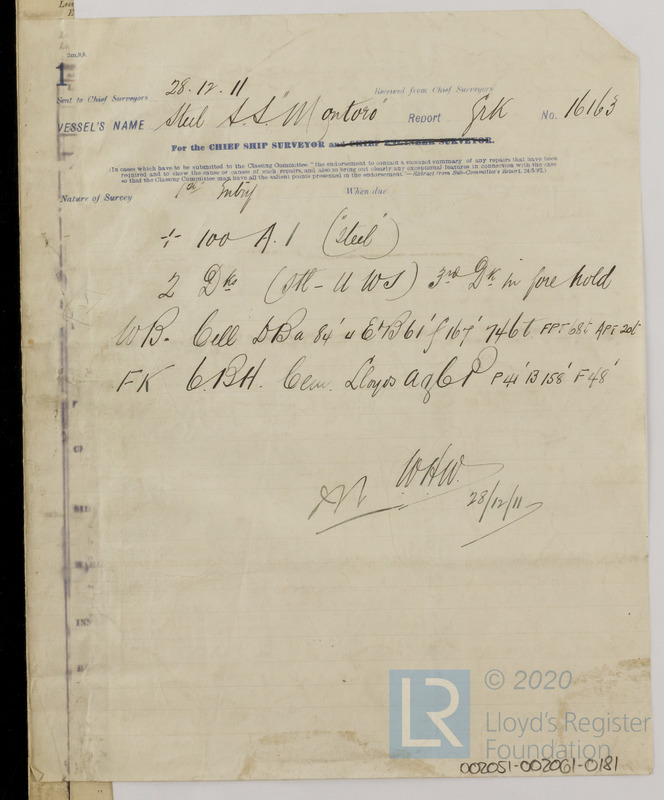 28.12.11
Sent to Chief Surveyors Received from Chief Surveyors
VESSEL'S NAME Steel S.S. "Montoro" Report Grk No. 16163
For the CHIEF SHIP SURVEYOR and CHIEF ENGINEER SURVEYOR.
(In cases which have to be submitted to the Classing Committee "the endorsement to contain a succinct summary of any repairs that have been
required and to show the cause or causes of such repairs, and also to bring out clearly any exceptional features in connection with the case
so that the Classing Committee may have all the salient points presented in the endorsement."—Extract from Sub-Committee's Report, 24/5/92.)
Nature of Survey 1st Entry When due
÷ 100 A.1 ("Steel")
2 Dks (Stl - U W S) 3rd Dk in fore hold
WB. Cell DBa 84' u E&B 61' f 167' 746t FPT 68t APT 20t
FK 6.BH. Cem. Lloyds a & C P P 41' B 158' F 48'
W.H.W.
28/12/11
1
© 2020
LR
Lloyd's Register
Foundation
002051-002061-0181